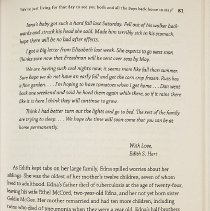 "We're just living for that day to see you both and all the boys back home to stay" 81
Jana's baby got such a hard fall last Saturday. Fell out of his walker back-
wards and struck his head she said. Made him terribly sick to his stomach,
hope there will be no bad after effects.
I got a big letter from Elizabeth last week. She expects to go west soon.
Thinks sure now that Freedman will be sent over seas by May.
We are having such cool nights now it seems more like fall than summer.
Sure hope we do not have an early fall and get the corn crop frozen. Russ has
a fine garden. . . . I'm hoping to have tomatoes when I get home. . . . Dan went
back one weekend and said he heard them again while there, so if it rains there
like it is here I think they will continue to grow.
Think I had better turn out the lights and go to bed. The rest of the family
are trying to sleep. . . . We hope the time will soon come that you can be at
home permanently.
With Love,
Edith S. Herr
As Edith kept tabs on her large family, Edna spilled worries about her
siblings. She was the oldest of her mother's twelve children, seven of whom
lived to adulthood. Edna's father died of tuberculosis at the age of twenty-four
leaving his wife Ethel McCord, two-year-old Edna, and her not yet born sister
Goldie McGee. Her mother remarried and had ten more children, including
twins who died of pneumonia when they were a year old. Edna's half brothers